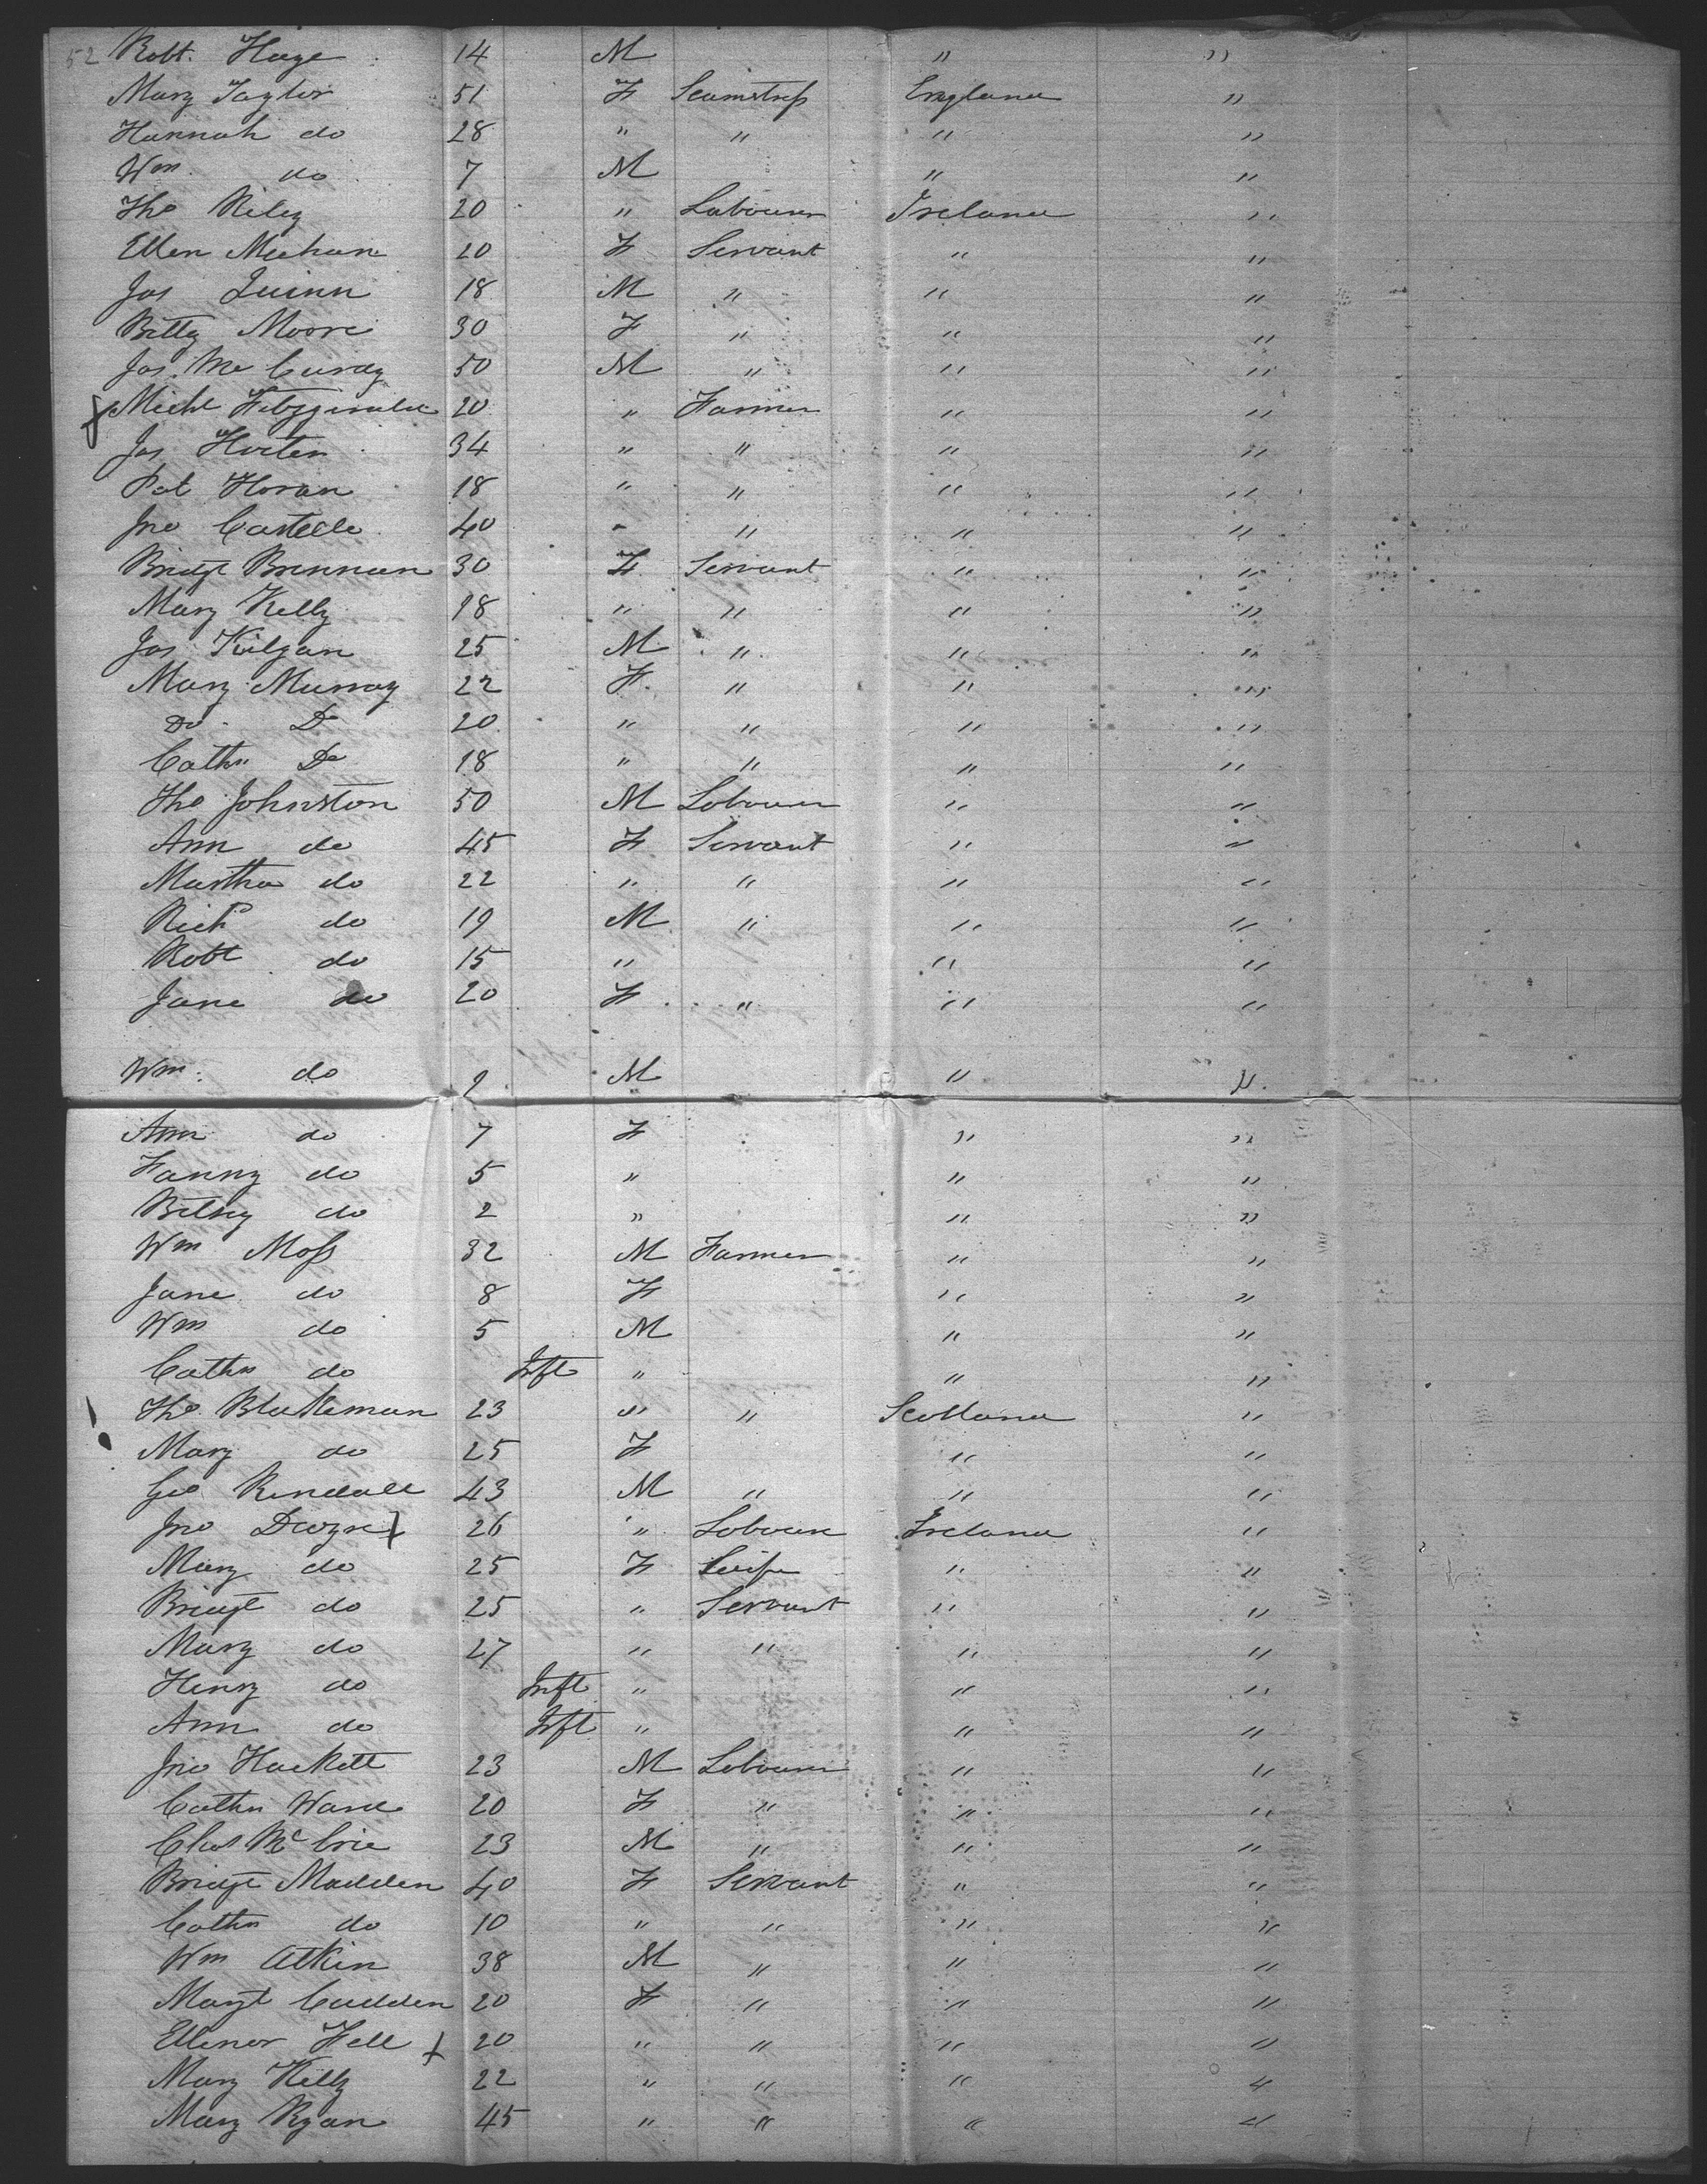 52 Robt. Haze 14 M " "
Mary Taylor 51 F Seamstress England "
Hannah do 28 " " " "
Wm. do 7 M " "
Tho Riley 20 " Labourer Ireland "
Ellen Meehan 20 F Servant " "
Jas Quinn 18 M " " "
Betty Moore 30 F " " "
Jas. McCurdy 50 M " " "
Michl Fitzgerald 20 " Farmer " "
Jas Horten 34 " " " "
Pat Horan 18 " " " "
Jno Castelle 40 " " " "
Bridgt Brennan 30 F Servant " "
Mary Kelly 18 " " " "
Jas Kilgan 25 M " " "
Mary Murray 22 F " " "
Do Do 20 " " " "
Cathn Do 18 " " " "
Tho Johnston 50 M Labourer " "
Ann do 45 F Servant " "
Martha do 22 " " " "
Richd do 19 M " " "
Robt do 15 " " "
Jane do 20 F " " "
Wm. do 9 M " "
Ann do 7 F " "
Fanny do 5 " " "
Betsy do 2 " " "
Wm Moss 32 M Farmer " "
Jane do 8 F " "
Wm do 5 M " "
Cathn do Inft " " "
Tho. Blakeman 23 " " Scotland "
Mary do 25 F " "
Geo Rendall 43 M " " "
Jno Dwyre 26 " Labourer Ireland "
Mary do 25 F Wife " "
Bridgt do 25 " Servant " "
Mary do 27 " " " "
Henry do Inft " " "
Ann do Inft " " "
Jno Hackett 23 M Labourer " "
Cathn Ward 20 F " " "
Chas McCrie 23 M " " "
Bridgt Madden 40 F Servant " "
Cathn do 10 " " " "
Wm Atkin 38 M " " "
Margt Cudden 20 F " " "
Ellenor Fell 20 " " " "
Mary Kelly 22 " " " "
Mary Ryan 45 " " " "